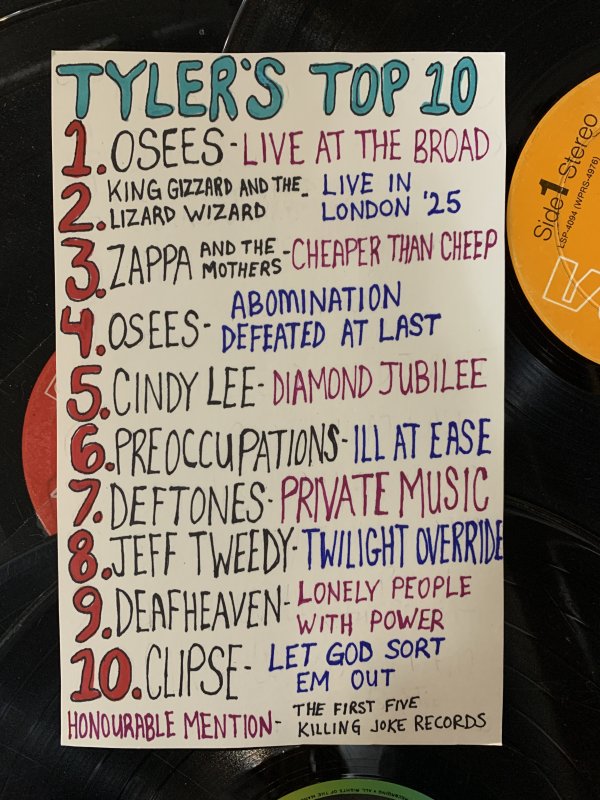 TYLER'S TOP 10
1. OSEES - LIVE AT THE BROAD
2. KING GIZZARD AND THE LIZARD WIZARD - LIVE IN LONDON '25
3. ZAPPA AND THE MOTHERS - CHEAPER THAN CHEEP
4. OSEES - ABOMINATION DEFEATED AT LAST
5. CINDY LEE - DIAMOND JUBILEE
6. PREOCCUPATIONS - ILL AT EASE
7. DEFTONES - PRIVATE MUSIC
8. JEFF TWEEDY - TWILIGHT OVERRIDE
9. DEAFHEAVEN - LONELY PEOPLE WITH POWER
10. CLIPSE - LET GOD SORT EM OUT
HONOURABLE MENTION - THE FIRST FIVE KILLING JOKE RECORDS
Side 1 Stereo
LSP-4094 (WPRS-4976)